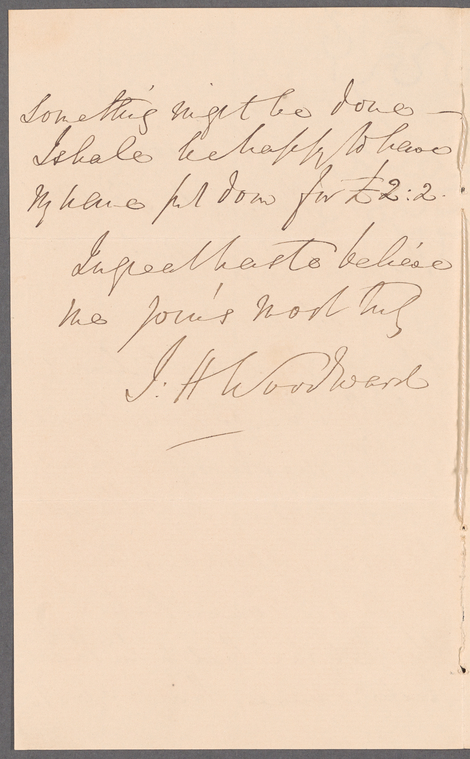 something might be done —
I shall be happy to have
my name put down for £2:2.
In great haste believe
me yours most truly
J. H Woodward